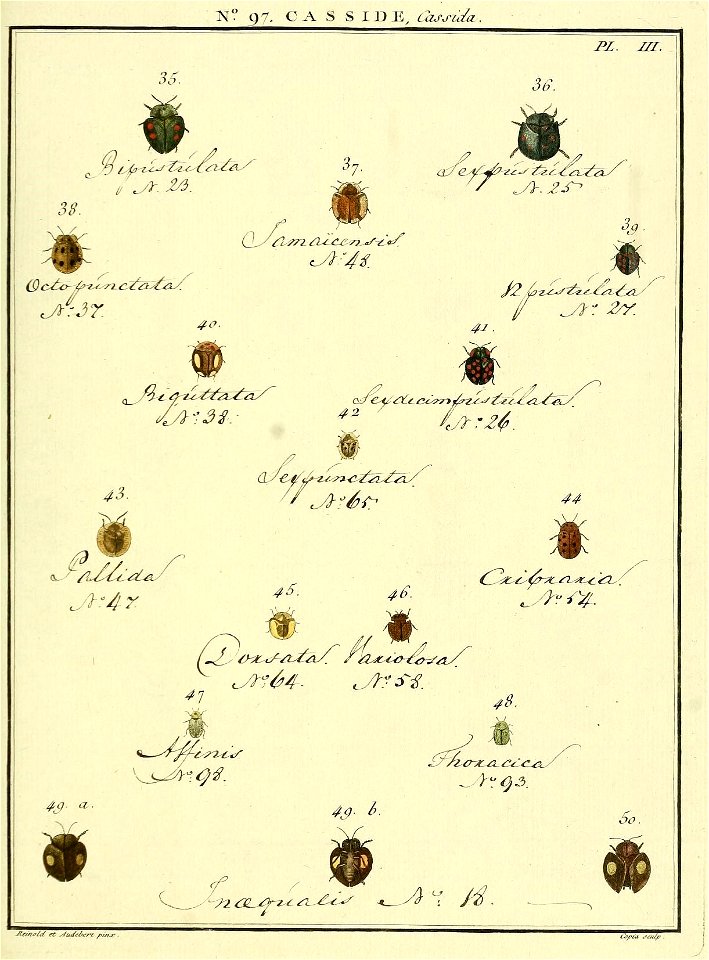 Nº. 97. CASSIDE, Cassida.
PL. III.
35.
Bipustulata
N. 23.
36.
Sexpustulata
N. 25
37.
Jamaicensis
Nº. 43.
38.
Octopunctata.
Nº. 37.
39.
12 pustulata
Nº. 27.
40.
Biguttata
Nº. 38.
41.
Sexdecimpustulata.
Nº. 26.
42
Sexpunctata.
Nº. 65
43.
Pallida
Nº. 47
44
Cribraria.
Nº. 54.
45.
Dorsata.
Nº. 64.
46.
Variolosa.
Nº. 58.
47
Affinis
Nº. 98.
48.
Thoracica
Nº. 93.
49. a.
49. b.
50.
Inæqualis Nº. 18.
Reinold et Audebert pinx.
Copia sculp.